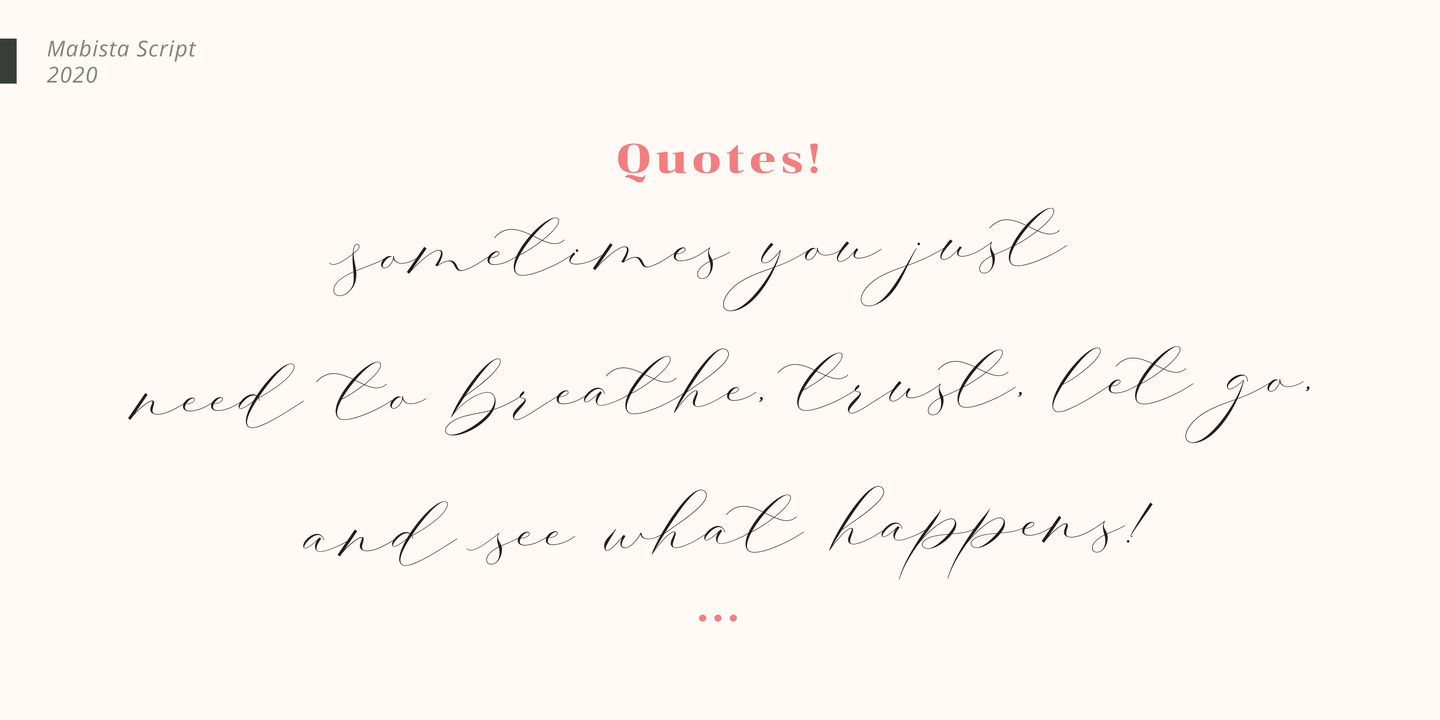 Mabista Script
2020
Quotes!
sometimes you just
need to breathe, trust, let go,
and see what happens!
...